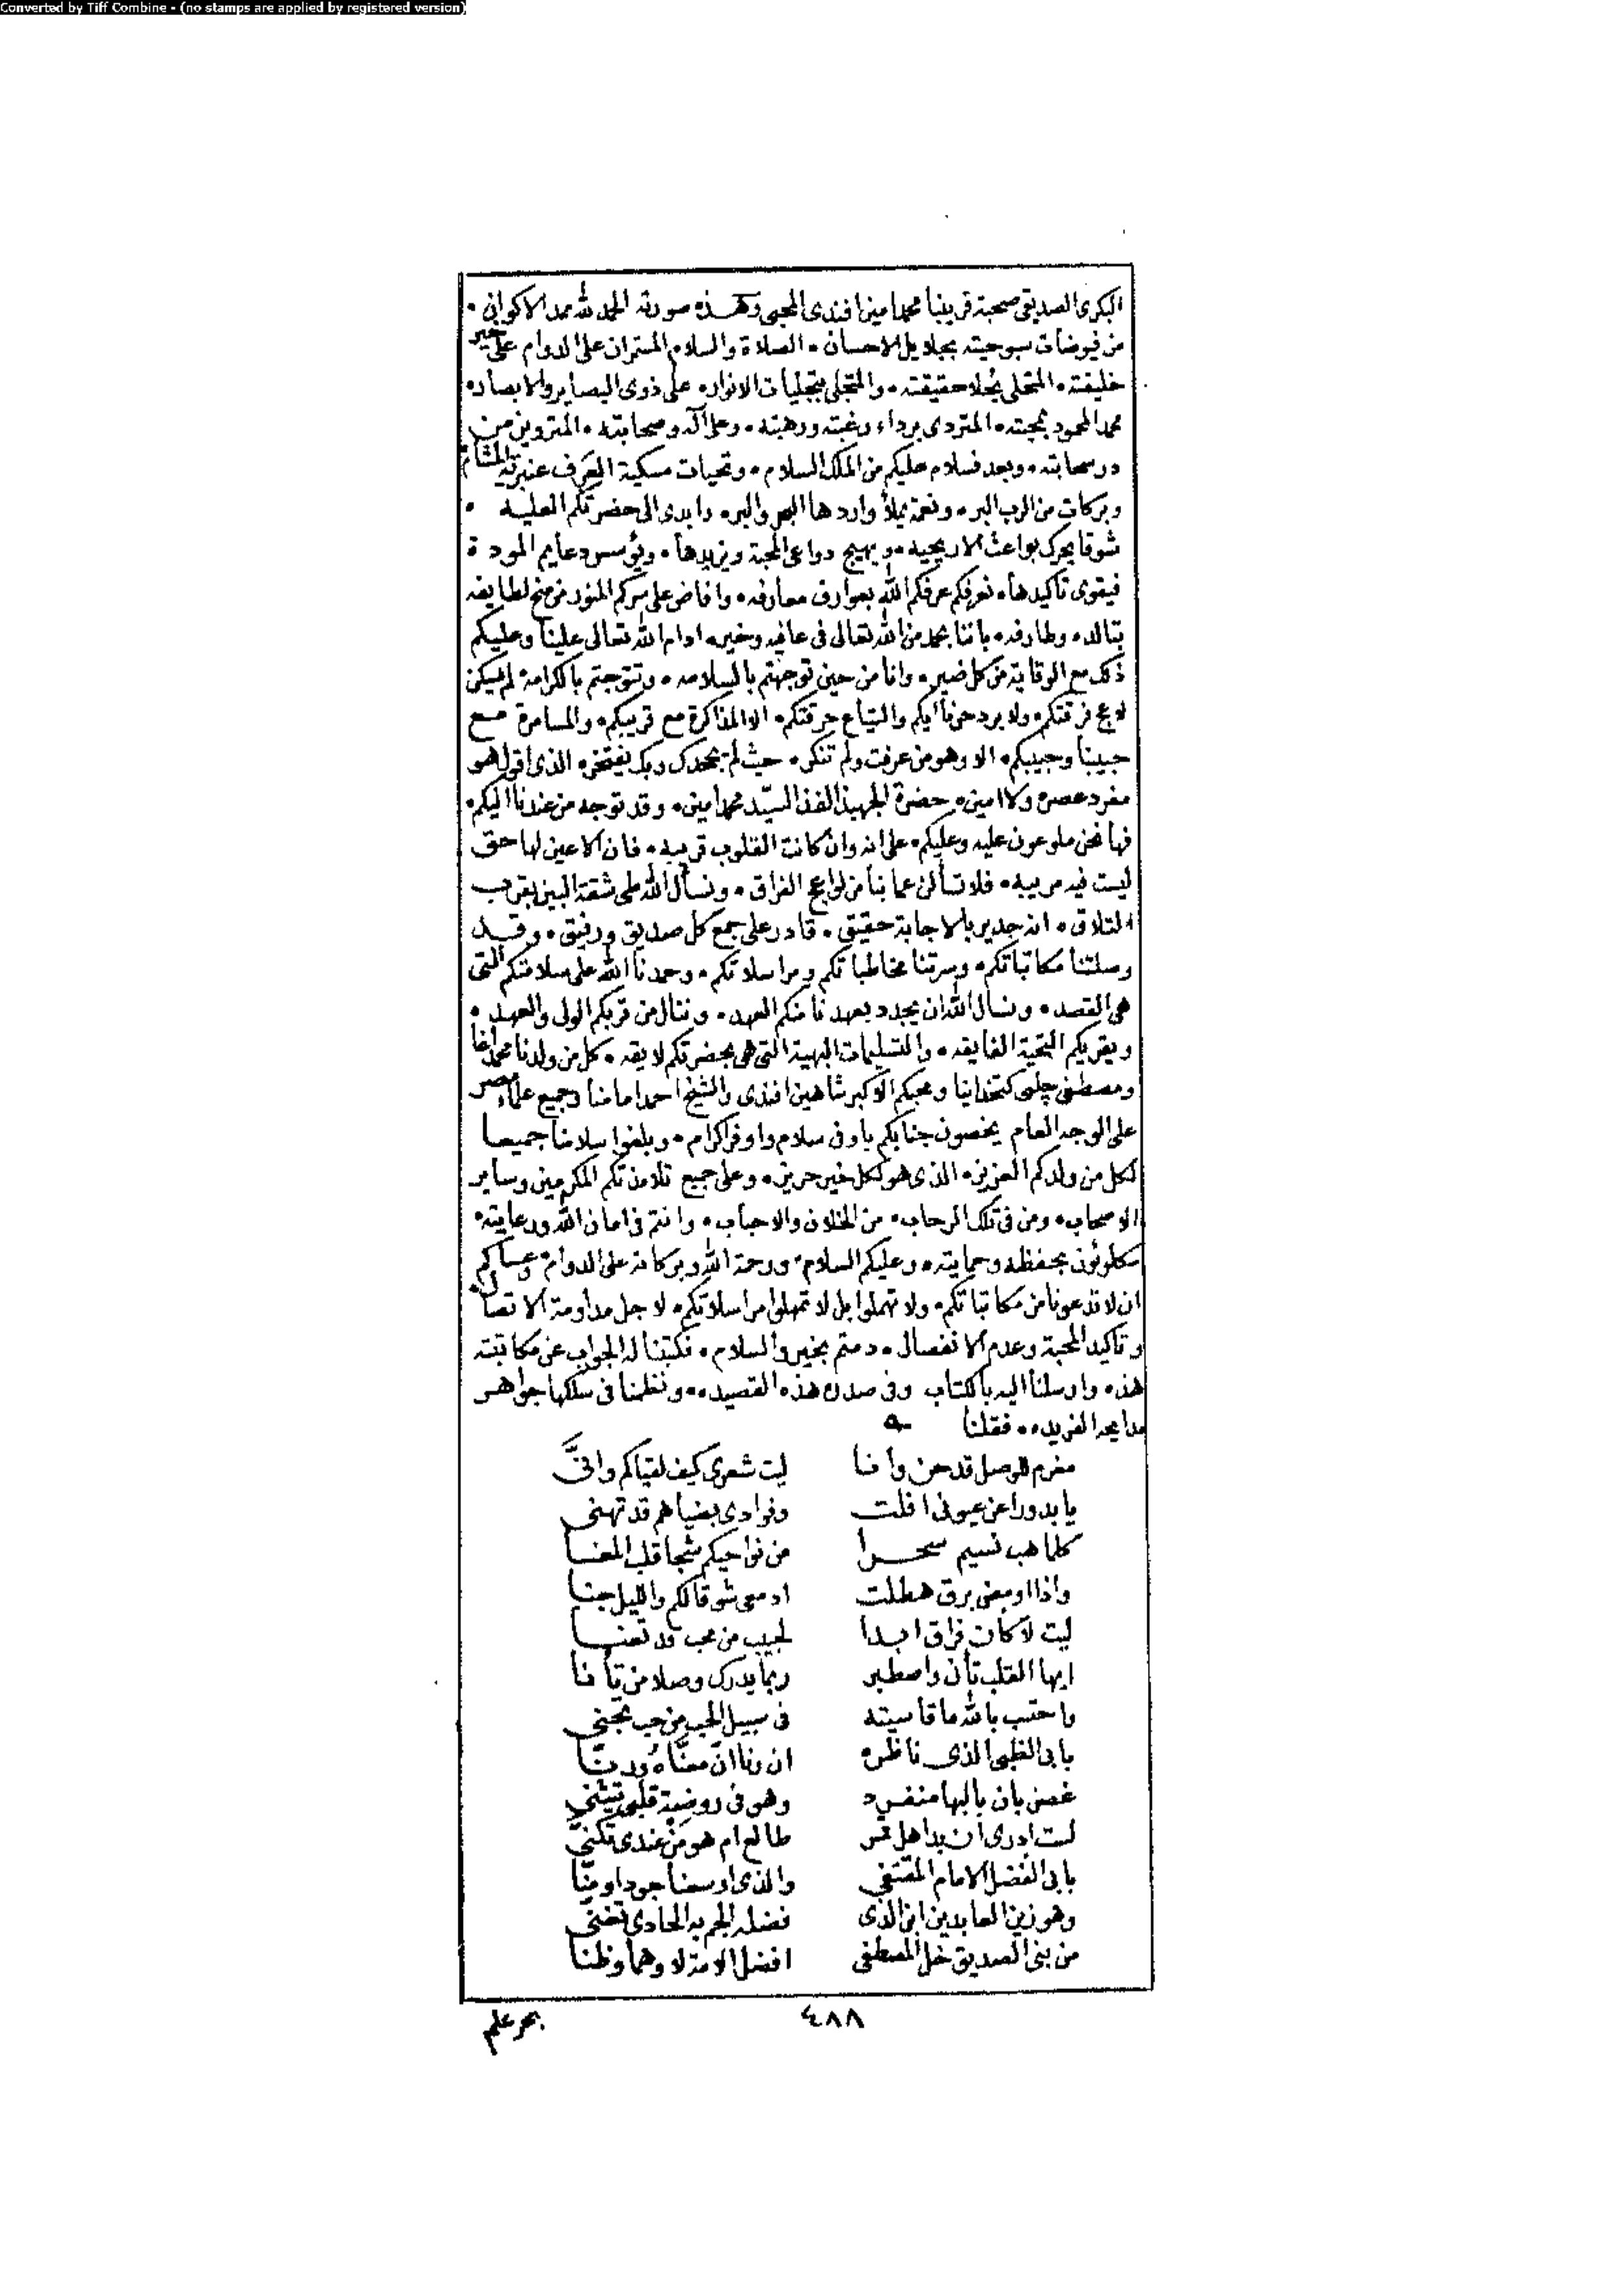 Converted by Tiff Combine - (no stamps are applied by registered version)
البكرى الصديقى صحبة قريبنا محمد امين افندى المحبى وهذه صورته الحمد لله ممد الاكوان
من فيوضات سبوحيته بجلايل الاحسان والصلاة والسلام المستمران على الدوام على خير
خليقته المتحلى بحلا حقيقته والمتجلى بتجليات الانوار على ذوى البصاير والابصار
محمد المحمود بمحبته المتردى برداء رغبته ورهبته وعلى آله وصحابته المتروين من
در سحابته وبعد فسلام عليكم من الملك السلام وتحيات مسكية العرف عنبرية المشام
وبركات من الرب البر ونعمة يملأ واردها البحر والبر وابدى الى حضرتكم العليه
شوقا يحرك بواعث الاريحيه ويهيج دواعى المحبة ويزيدها ويؤسس دعايم المودة
فيقوى تأكيدها نعرفكم عرفكم الله بعوارف معارفه وافاض على سركم المنور من منح لطايفه
بتالده وطارفه باننا بحمد من الله تعالى فى عافيه وخير ادام الله تعالى علينا وعليكم
ذلك مع الوقاية من كل ضير وانا من حين توجهتم بالسلامه وتتوجتم بالكرامة لم يسكن
لاعج فرقتكم ولا برد حر والتياع حرقتكم الا المذاكرة مع قريبكم والمسامرة مع
حبيبنا وحبيبكم الا وهو من عرفت ولم تنكر حيث لم يجحدك وبك يفتخر الذى اقول هو
مفرد عصره ولا امين حضرة الجهبذ الفذ السيد محمد امين وقد توجه من عندنا اليكم
فها نحن ملوعون عليه وعليكم على انه وان كانت القلوب قريبه فان الاعين لها حق
ليست فيه مريبه فلا تسألن عما بنا من لواعج الفراق ونسأل الله طى شقة البين بقرب
التلاق انه جدير بالاجابة حقيق قادر على جمع كل صديق ورفيق وقد
وصلتنا مكاتباتكم وسرتنا مخاطباتكم ومراسلاتكم وحمدنا الله على سلامتكم التى
هى القصد ونسال الله ان يجدد بعهدنا منكم العهد وننال من قربكم الولى والعهد
ويقريكم التحية الفايقه والتسليمات البهية التى هى بحضرتكم لايقه كل من ولدنا محمد اغا
ومصطفى چلبى كتخداينا ومحبكم الاكبر شاهين افندى والشيخ احمد امامنا وجميع علماء مصر
على الوجه العام يخصون جنابكم باوفى سلام واوفر اكرام وبلغوا سلامنا جميعا
لكل من ولدكم العزيز الذى هو لكل خير حريز وعلى جميع تلامذتكم المكرمين وساير
الاصحاب ومن فى تلك الرحاب من الخلان والاحباب وانتم فى امان الله ورعايته
مكلوئون بحفظه وحمايته وعليكم السلام ورحمة الله وبركاته على الدوام وعساكم
ان لا تدعونا من مكاتباتكم ولا تهملوا بل لا تمهلوا مراسلاتكم لاجل مداومة الاتصال
وتأكيد المحبة وعدم الانفصال دمتم بخير والسلام فكتبنا له الجواب عن مكاتبته
هذه وارسلنا اليه بالكتاب وفى صدره هذه القصيده ونظمنا فى سلكها جواهر
مدايحه الفريده فقلنا
مغرم للوصل قد حن وأنا ليت شعرى كيف لقياكم وانى
يا بدورا عن عيونى افلت وفوادى بضياهم قد تهنى
كلما هب نسيم سحرا من نواحيكم شجا قلب المعنا
واذا اومض برق هطلت ادمعى شوقا لكم والليل جنا
ليت لا كان فراق ابدا لحبيب من محب قد تعنا
ايها القلب تأن واصطبر ربما يدرك وصلا من تأنا
واحتسب بالله ما قاسيته فى سبيل الحب من حب تجنى
بابى الظبى الذى ناظره ان رنا
غصن بان بالبها منفرد وهو فى روضة قلبى يتثنى
لست ادرى ان بدا هل قمر طالع ام هو من عندى تكنى
بابى الفضل الامام المقتفى والذى اوسعنا جودا ومنا
وهو زين العابدين ابن الذى فضله الجم به الحادى تغنى
من بنى الصديق خل المصطفى افضل الامة لا وهما وظنا
٤٨٨
بحر علم